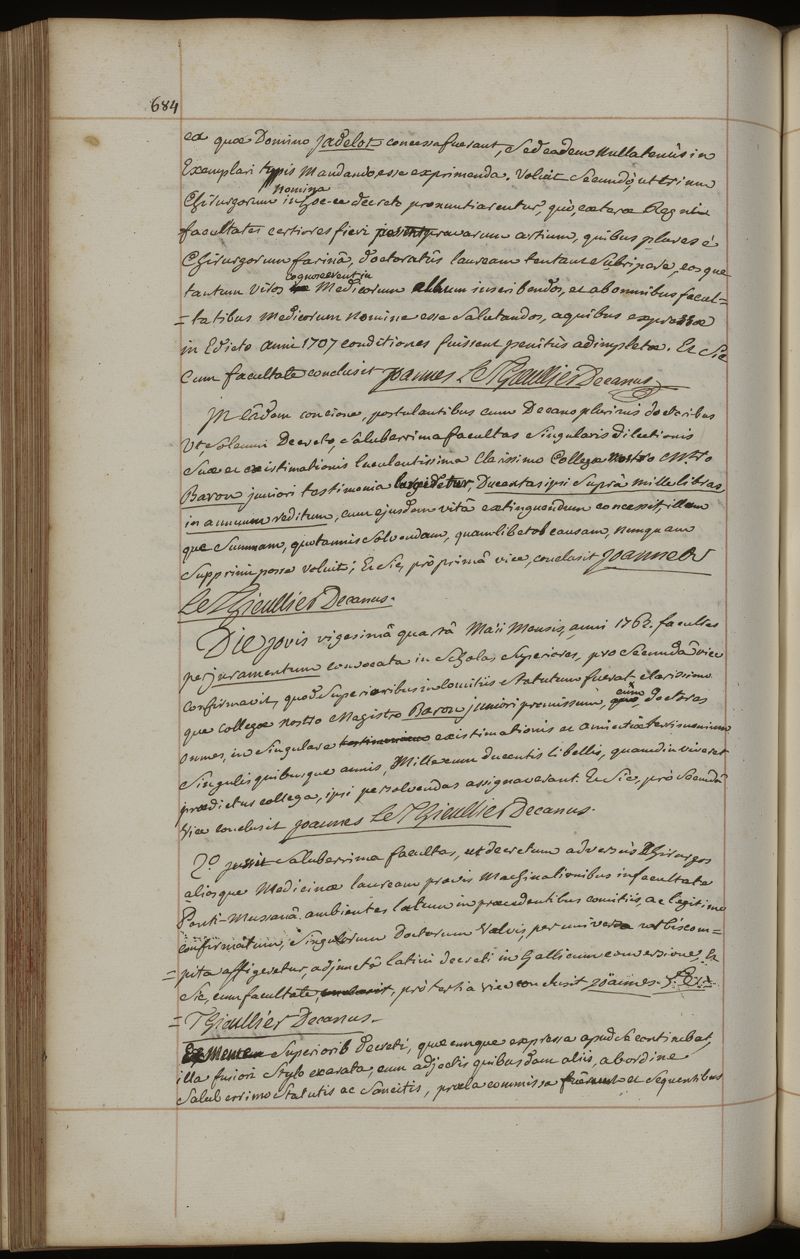 684
ea quæ Domino Jadelot concessa fuerant, sed eadem nullatenùs in
Exemplari typis Mandando esse exprimenda. Voluit secundò ut trium
Chirurgorum nomina in hoc-ce decreto pronuntiarentur, quò, cæteræ Regni
facultates certiores fieri possint pravarum artium, quibus plures è
Chirurgorum farinâ, doctoratûs lauream tentant subripere, eos que
tantum viros cognoscerent in Medicorum album inscribendos, et ab omnibus facul-
=tatibus Medicorum nomine esse salutandos, a quibus expressæ
in Edicto anni 1707 conditiones fuissent penitùs adimpletæ. Et sic
cum facultate conclusit Joannes Le Thieullier Decanus
In eâdem concione, postulantibus cum Decano plurimis doctoribus
Ut, solemni Decreto, saluberrima facultas singularis dilectionis
suæ ac existimationis luculentissima Clarissimo Collegæ nostro M.ro
Baron juniori testimonia largiretur, Ducentas ipsi suprà mille libras
in annuum reditum, cum ejusdem vitâ extinguendum concessit, illam
que summam, quotannis solvendam, quamlibet ob causam, nunquam
supprimi posse voluit; Et sic, prò primâ vice, conclusit Joannes
Le Thieullier Decanus.
Die jovis vigesimâ quartâ Maii Mensis, anni 1762. facultas
per juramentum convocata in scholas superiores, pro secundâ vice
confirmavit, quod superioribus in comitiis statutum fuerat clarissimo
que collegæ nostro Magistro Baron juniori promissum, cum doctores
omnes, in singulare existimationis ac amicitiæ testimonium
singulis quibusque annis, Mille cum ducentis libellis, quamdiu viveret
prædictus collega, ipsi persolvendas assignaverant. Et sic, prò secundâ
vice conclusit Joannes Le Thieullier Decanus.
2.o jussit saluberrima facultas, ut decretum adversùs Chirurgos
aliosque Medicinæ lauream pravis Machinationibus in facultate
Ponti-Mussanâ ambientes latum in præcedentibus comitiis, ac legitimè
confirmatum, singulorum Doctorum valvis, per universæ urbis com=
=pita affigeretur, adjunctâ latini decreti in Gallicum conversione, Et
sic, cum facultate, conclusit, prò tertia vice conclusit Joannes. Le
=Thieullier Decanus.-
Ex Mentem superioris decreti, quæcumque expressa apud se continebat,
illa fusiori stylo exarata, cum adjectis quibusdam aliis, ab ordine
saluberrimo statutis ac sancitis, præla commissa fuerunt et sequentibus